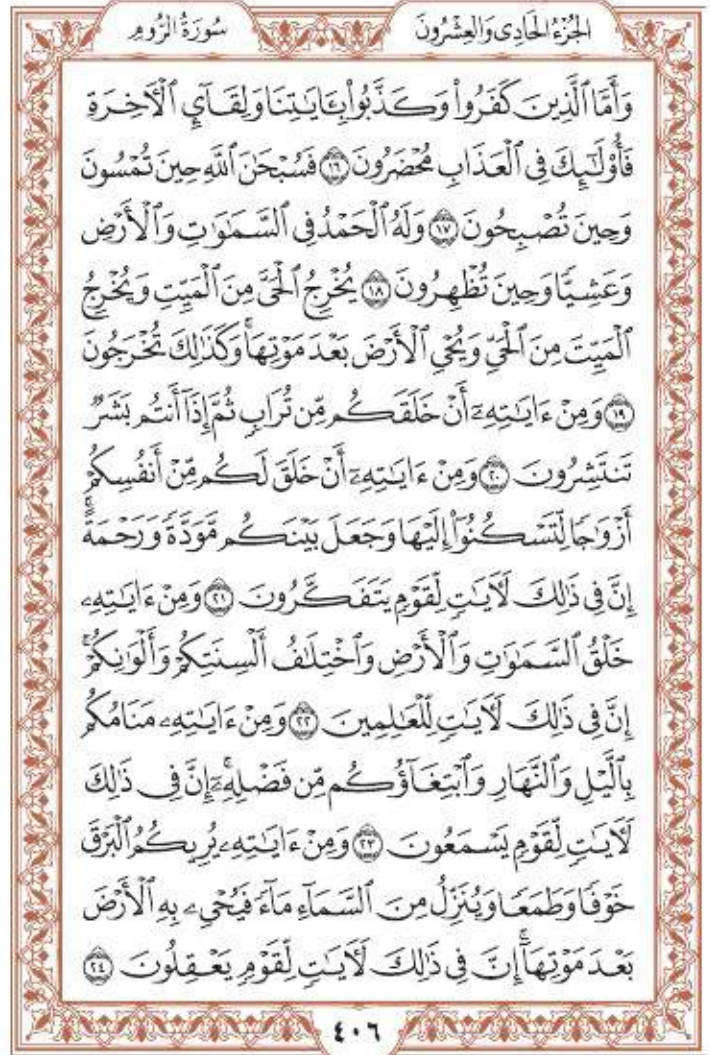 سُورَةُ الرُّومِ
الجُزْءُ الحَادِى وَالعِشْرُونَ
وَأَمَّا ٱلَّذِينَ كَفَرُواْ وَكَذَّبُواْ بِـَٔايَـٰتِنَا وَلِقَآيِٕ ٱلْأٓخِرَةِ
فَأُوْلَـٰٓئِكَ فِى ٱلْعَذَابِ مُحْضَرُونَ ١٦ فَسُبْحَـٰنَ ٱللَّهِ حِينَ تُمْسُونَ
وَحِينَ تُصْبِحُونَ ١٧ وَلَهُ ٱلْحَمْدُ فِى ٱلسَّمَـٰوَٰتِ وَٱلْأَرْضِ
وَعَشِيًّا وَحِينَ تُظْهِرُونَ ١٨ يُخْرِجُ ٱلْحَىَّ مِنَ ٱلْمَيِّتِ وَيُخْرِجُ
ٱلْمَيِّتَ مِنَ ٱلْحَىِّ وَيُحْىِ ٱلْأَرْضَ بَعْدَ مَوْتِهَاۚ وَكَذَٰلِكَ تُخْرَجُونَ
١٩ وَمِنْ ءَايَـٰتِهِۦٓ أَنْ خَلَقَكُم مِّن تُرَابٍ ثُمَّ إِذَآ أَنتُم بَشَرٌ
تَنتَشِرُونَ ٢٠ وَمِنْ ءَايَـٰتِهِۦٓ أَنْ خَلَقَ لَكُم مِّنْ أَنفُسِكُمْ
أَزْوَٰجًا لِّتَسْكُنُوٓاْ إِلَيْهَا وَجَعَلَ بَيْنَكُم مَّوَدَّةً وَرَحْمَةًۚ
إِنَّ فِى ذَٰلِكَ لَأٓيَـٰتٍ لِّقَوْمٍ يَتَفَكَّرُونَ ٢١ وَمِنْ ءَايَـٰتِهِۦ
خَلْقُ ٱلسَّمَـٰوَٰتِ وَٱلْأَرْضِ وَٱخْتِلَـٰفُ أَلْسِنَتِكُمْ وَأَلْوَٰنِكُمْۚ
إِنَّ فِى ذَٰلِكَ لَأٓيَـٰتٍ لِّلْعَـٰلِمِينَ ٢٢ وَمِنْ ءَايَـٰتِهِۦ مَنَامُكُم
بِٱلَّيْلِ وَٱلنَّهَارِ وَٱبْتِغَآؤُكُم مِّن فَضْلِهِۦٓۚ إِنَّ فِى ذَٰلِكَ
لَأٓيَـٰتٍ لِّقَوْمٍ يَسْمَعُونَ ٢٣ وَمِنْ ءَايَـٰتِهِۦ يُرِيكُمُ ٱلْبَرْقَ
خَوْفًا وَطَمَعًا وَيُنَزِّلُ مِنَ ٱلسَّمَآءِ مَآءً فَيُحْىِۦ بِهِ ٱلْأَرْضَ
بَعْدَ مَوْتِهَآۚ إِنَّ فِى ذَٰلِكَ لَأٓيَـٰتٍ لِّقَوْمٍ يَعْقِلُونَ ٢٤
٤٠٦